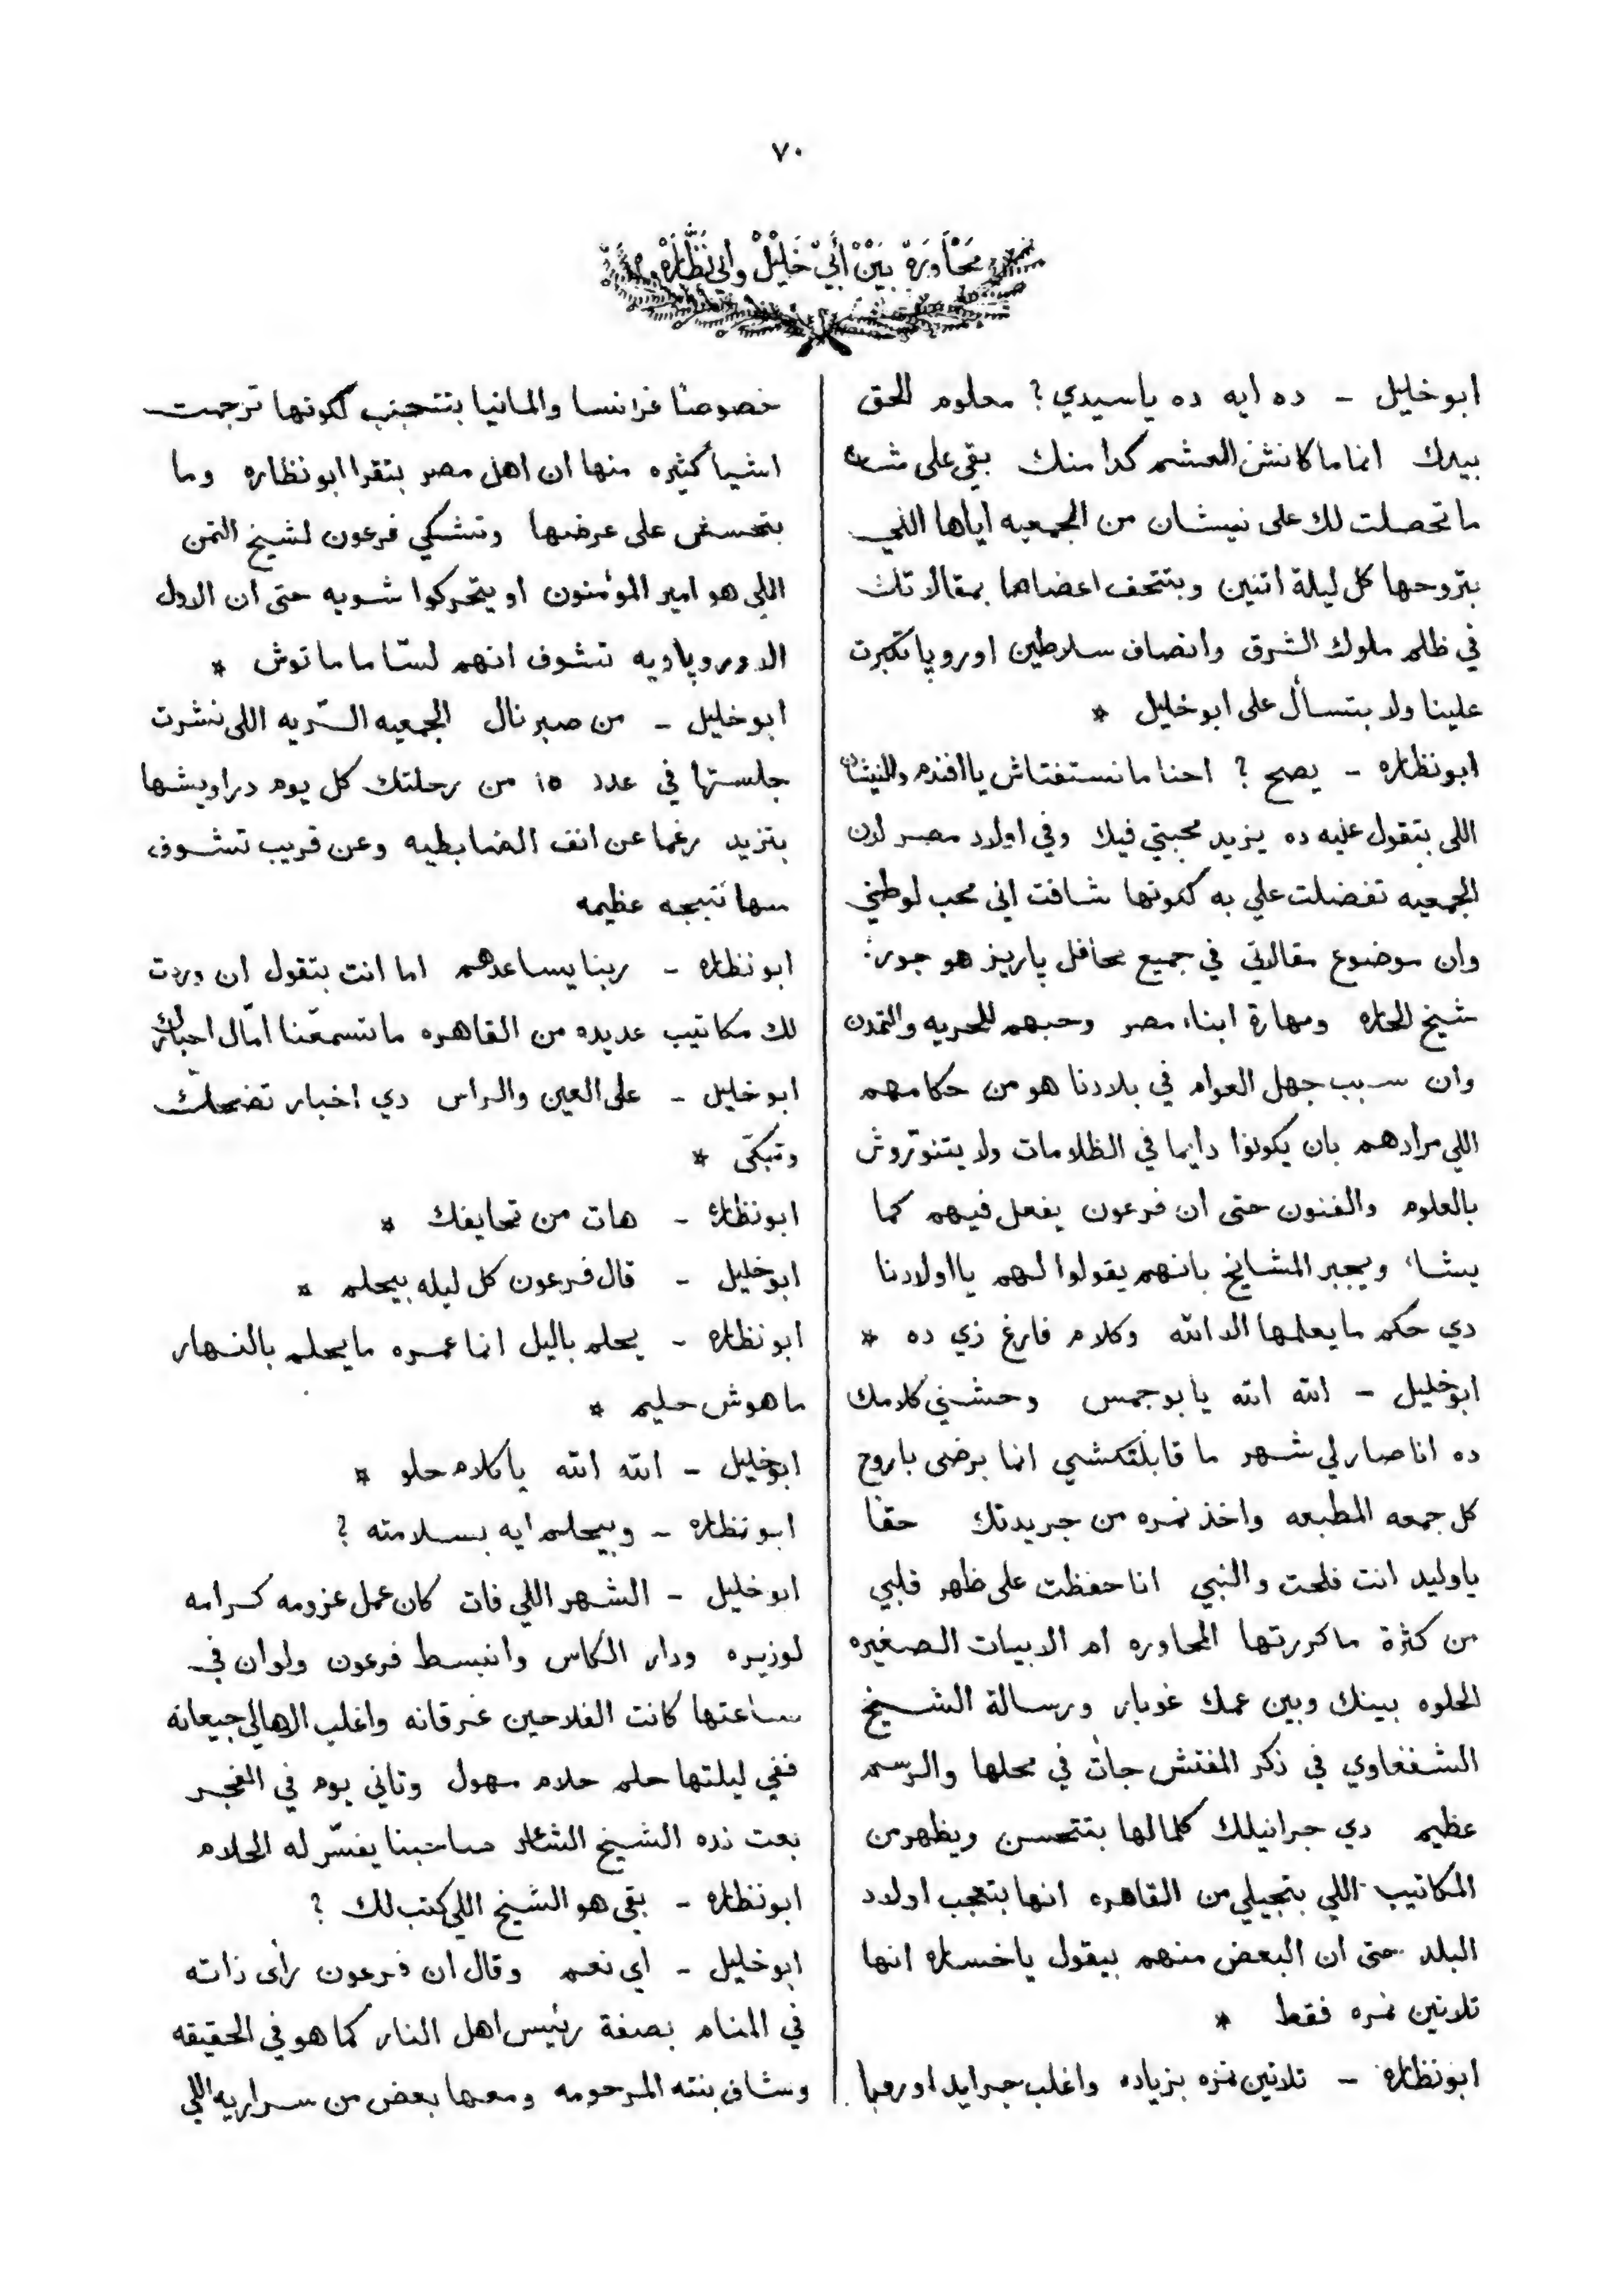 ٧٠
محاورة بين أبي خليل وأبي نظاره
ابو خليل - ده ايه ده ياسيدي ؟ معلوم الحق
بيدك انما ما كانش العشم كدا منك بقى على شان
ما تحصلت لك على نيشان من الجمعيه اياها اللي
بتروحها كل ليلة اتنين وبتتحف اعضاها بمقالاتك
في ظلم ملوك الشرق وانصاف سلاطين اوروپا تكبرت
علينا ولا بتسأل على ابو خليل *
ابو نظاره - يصح ؟ احنا ما نستغناش يا افندم والنيشان
اللى بتقول عليه ده يزيد محبتي فيك وفي اولاد مصر لان
الجمعيه تفضلت علي به كونها شافت اني محب لوطني
وان موضوع مقالاتي في جميع محافل پاريز هو جور
شيخ الحاره ومهارة ابناء مصر وحبهم للحريه والتمدن
وان سبب جهل العوام في بلادنا هو من حكامهم
اللي مرادهم بان يكونوا دايما في الظلامات ولا يتنوروش
بالعلوم والفنون حتى ان فرعون يفعل فيهم كما
يشاء ويجبر المشايخ بانهم يقولوا لهم يا اولادنا
دي حكم ما يعلمها الا الله وكلام فارغ زي ده *
ابو خليل - الله الله يابو جمس وحشني كلامك
ده انا صار لي شهر ما قابلتكشي انما برضى باروح
كل جمعه المطبعه واخذ نمره من جريدتك حقا
ياوليد انت فلحت والنبي انا حفظت على ظهر قلبي
من كثرة ما كررتها المحاوره ام الابيات الصغيره
الحلوه بينك وبين عمك غوبار ورسالة الشيخ
الشفغاوي في ذكر المفتش جات في محلها والرسم
عظيم دي جرانيلك كلمالها بتتحسن ويظهر من
المكاتيب اللي بتجيلي من القاهره انها بتعجب اولاد
البلد حتى ان البعض منهم بيقول ياخساره انها
تلاتين نمره فقط *
ابو نظاره - تلاتين نمره بزياده واغلب جرايد اوروپا
خصوصًا فرانسا والمانيا بتتعجب لكونها ترجمت
اشيأ كثيره منها ان اهل مصر بتقرا ابو نظاره وما
بتحسش على عرضها وتشكي فرعون لشيخ التمن
اللي هو امير المؤمنون او يتحركوا شويه حتى ان الدول
الاوروپاويه تشوف انهم لسّا ما ماتوش *
ابو خليل - من صبر نال الجمعيه السّريه اللى نشرت
جلستها في عدد ١٥ من رحلتك كل يوم دراويشها
بتزيد رغما عن انف الضابطيه وعن قريب تشوف
منها نتيجه عظيمه
ابو نظاره - ربنا يساعدهم اما انت بتقول ان وردت
لك مكاتيب عديده من القاهره ما تسمعنا امّال اخبارك
ابو خليل - على العين والراس دي اخبار تضحك
وتبكّى *
ابو نظاره - هات من تحايفك *
ابو خليل - قال فرعون كل ليله بيحلم *
ابو نظاره - يحلم باليل انما عمره ما يحلم بالنهار
ما هوش حليم *
ابو خليل - الله الله يا كلام حلو *
ابو نظاره - وبيحلم ايه بسلامته ؟
ابو خليل - الشهر اللي فات كان عمل عزومه كرامه
لوزيره ودار الكاس وانبسط فرعون ولو ان في
ساعتها كانت الفلاحين غرقانه واغلب الاهالي جيعانه
ففي ليلتها حلم حلام مهول وتاني يوم في الفجر
بعت نده الشيخ الشاعر صاحبنا يفسّر له الحلام
ابو نظاره - بقى هو الشيخ اللي كتب لك ؟
ابو خليل - اي نعم وقال ان فرعون رأى ذاته
في المنام بصفة رئيس اهل النار كما هو في الحقيقه
وشاف بنته المرحومه ومعها بعض من سراريه اللي